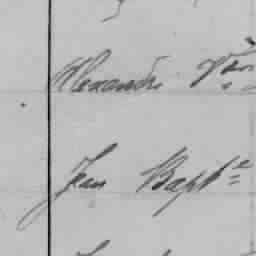 Alexandre
Jean Bapte